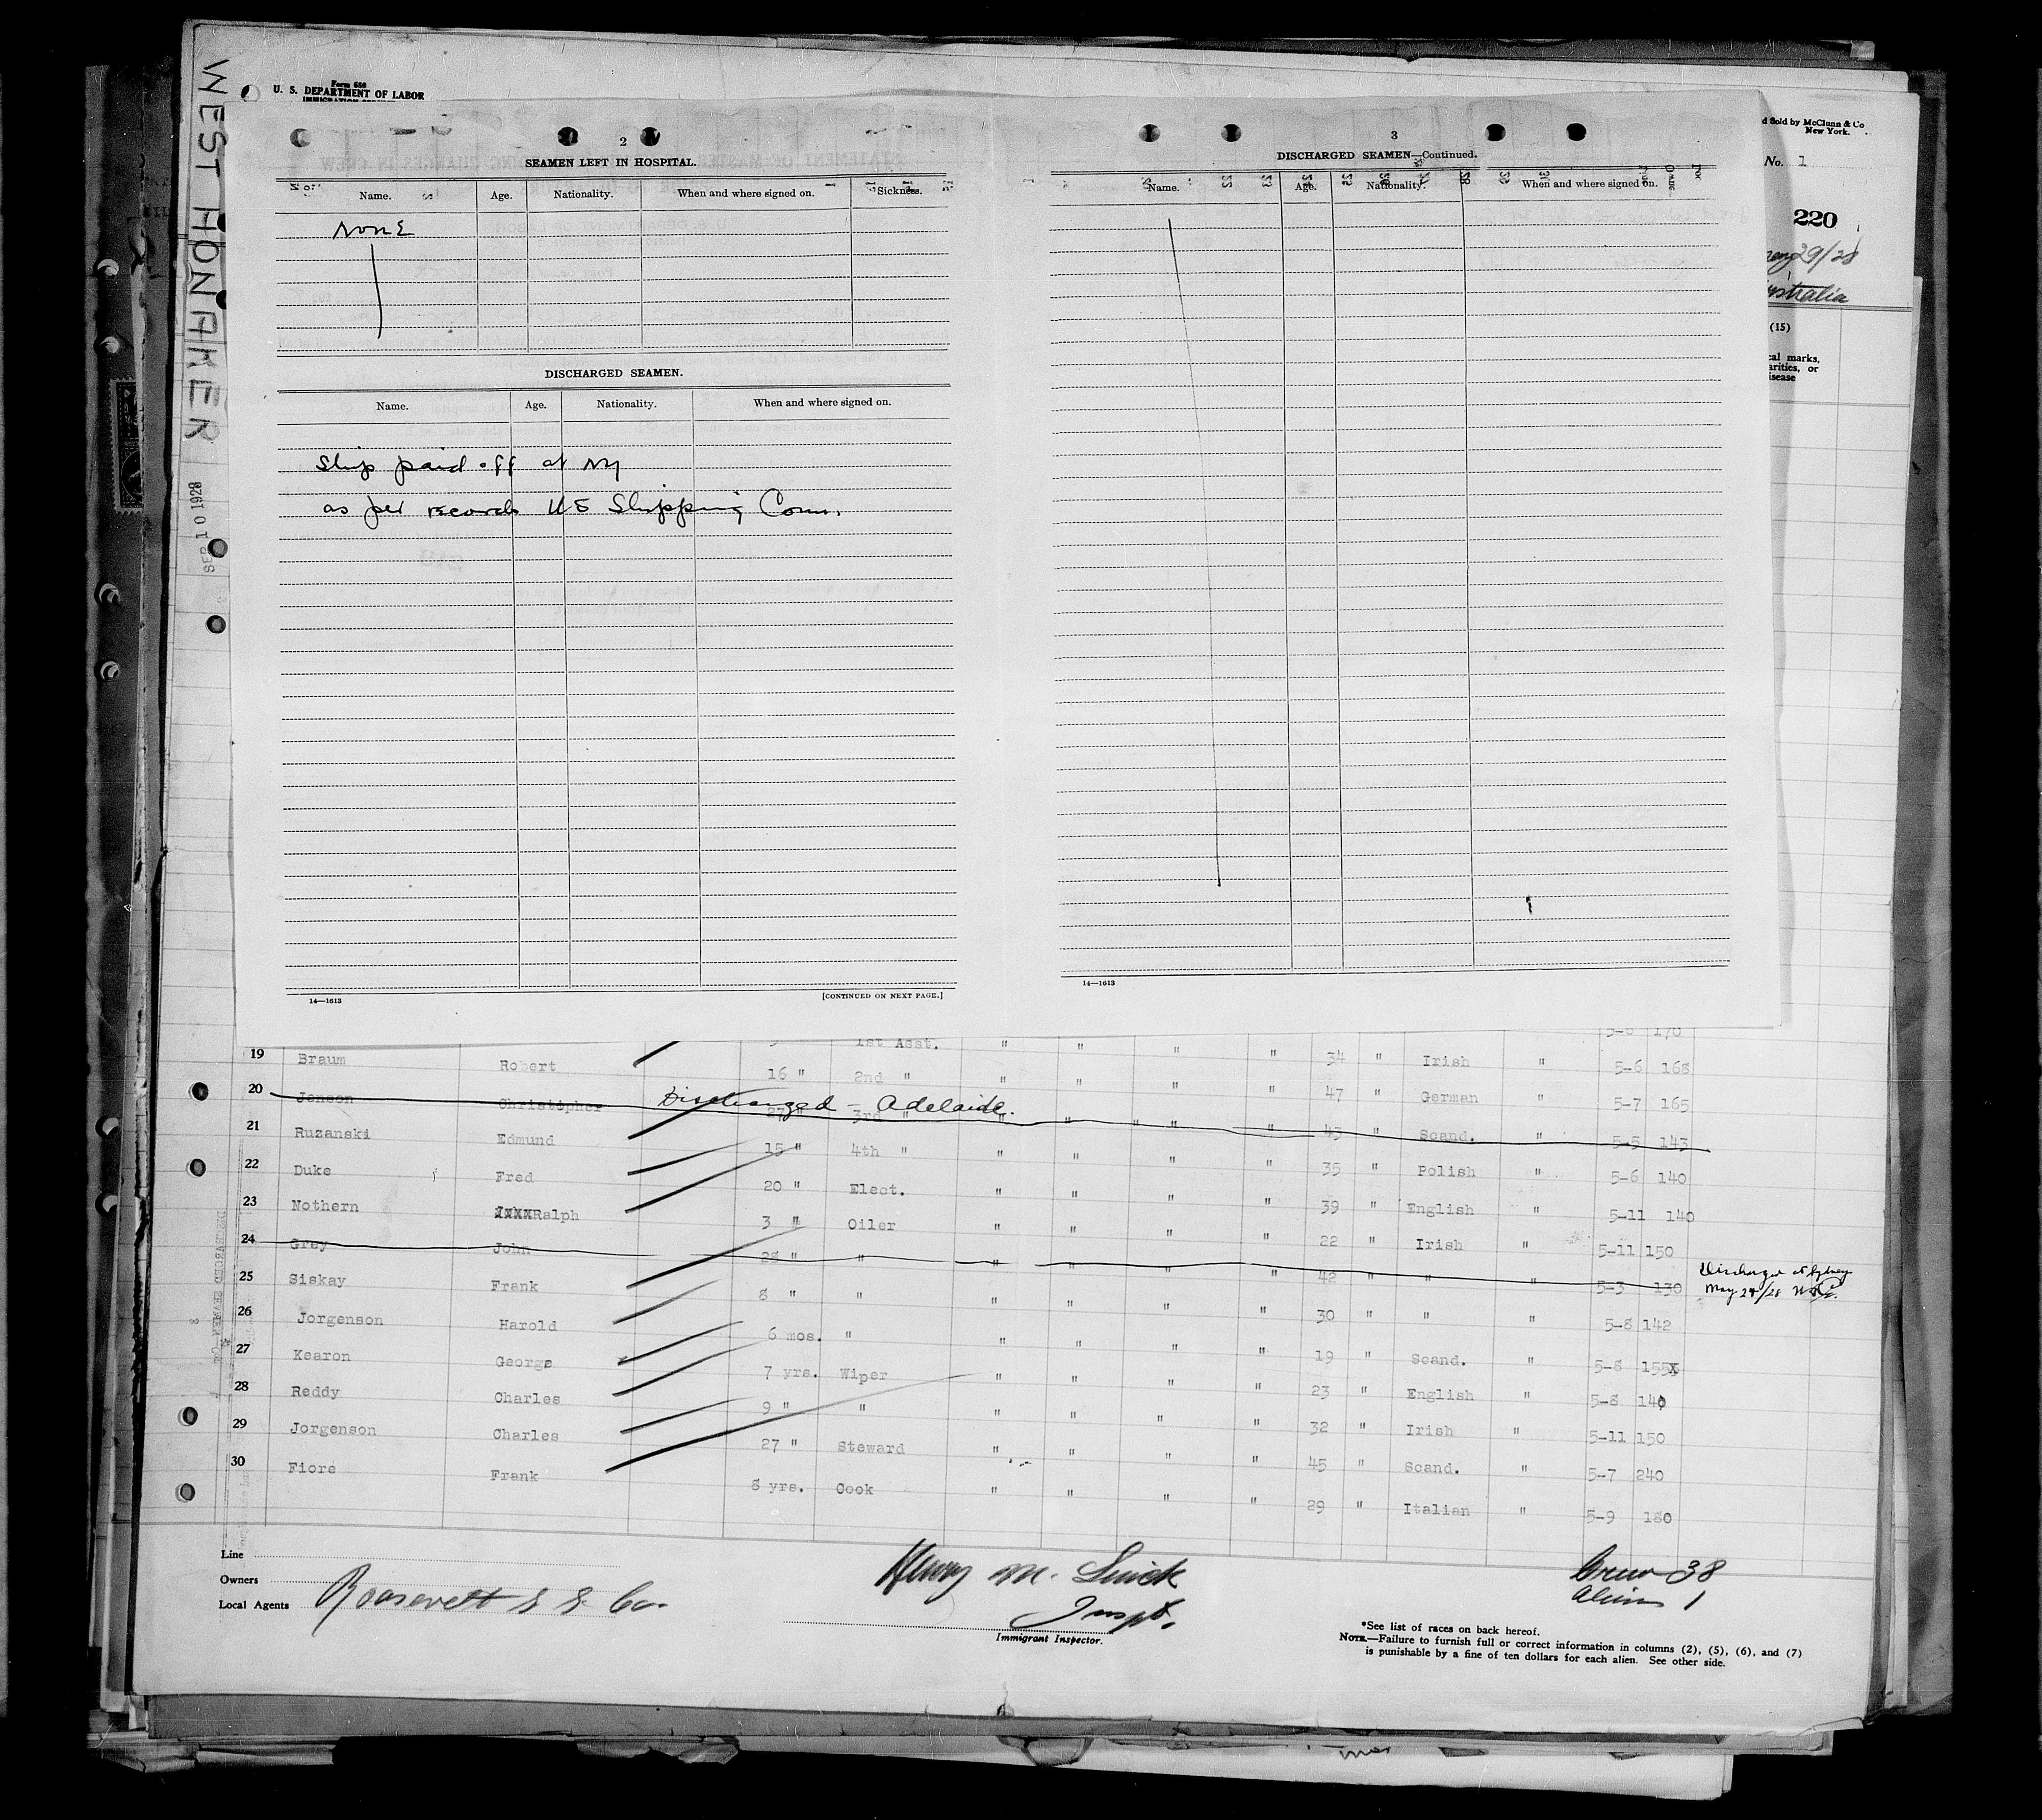 WEST HONAKER
SEP 10 1928
Form 680
U. S. DEPARTMENT OF LABOR
IMMIGRATION SERVICE
d Sold by McClunn & Co
New York.
No. 1
220
29/28
ustralia
(15)
cal marks,
arities, or
isease
2
SEAMEN LEFT IN HOSPITAL.
Name. Age. Nationality. When and where signed on. Sickness.
NONE
DISCHARGED SEAMEN.
Name. Age. Nationality. When and where signed on.
Ship paid off at NY
as per records US Shipping Comr.
14—1613 [CONTINUED ON NEXT PAGE.]
3
DISCHARGED SEAMEN—Continued.
Name. Age. Nationality. When and where signed on.
14—1613
5-6 170
19 Braum Robert 1st Asst. " " " " 34 " Irish " 5-6 168
20 Jenson Christopher 16 " 2nd " " " " " 47 " German " 5-7 165
Discharged - Adelaide.
21 Ruzanski Edmund 27 " 3rd " " " " " 43 " Scand. " 5-5 143
22 Duke Fred 15 " 4th " " " " " 35 " Polish " 5-6 140
23 Nothern Ralph 20 " Elect. " " " " 39 " English " 5-11 140
24 Grey John 3 " Oiler " " " " 22 " Irish " 5-11 150
25 Siskay Frank 28 " " " " " " 42 " " " 5-3 130
Discharged at Sydney
May 24/28
26 Jorgenson Harold 8 " " " " " " 30 " " " 5-8 142
27 Kearon George 6 mos. " " " " " 19 " Scand. " 5-8 155
28 Reddy Charles 7 yrs. Wiper " " " " 23 " English " 5-8 140
29 Jorgenson Charles 9 " " " " " " 32 " Irish " 5-11 150
30 Fiore Frank 27 " Steward " " " " 45 " Scand. " 5-7 240
8 yrs. Cook " " " " 29 " Italian " 5-9 180
Line
Owners
Local Agents Roosevelt S S Co.
Henry M.
Inspt.
Immigrant Inspector.
Crew 38
Aliens 1
*See list of races on back hereof.
NOTE.—Failure to furnish full or correct information in columns (2), (5), (6), and (7)
is punishable by a fine of ten dollars for each alien. See other side.